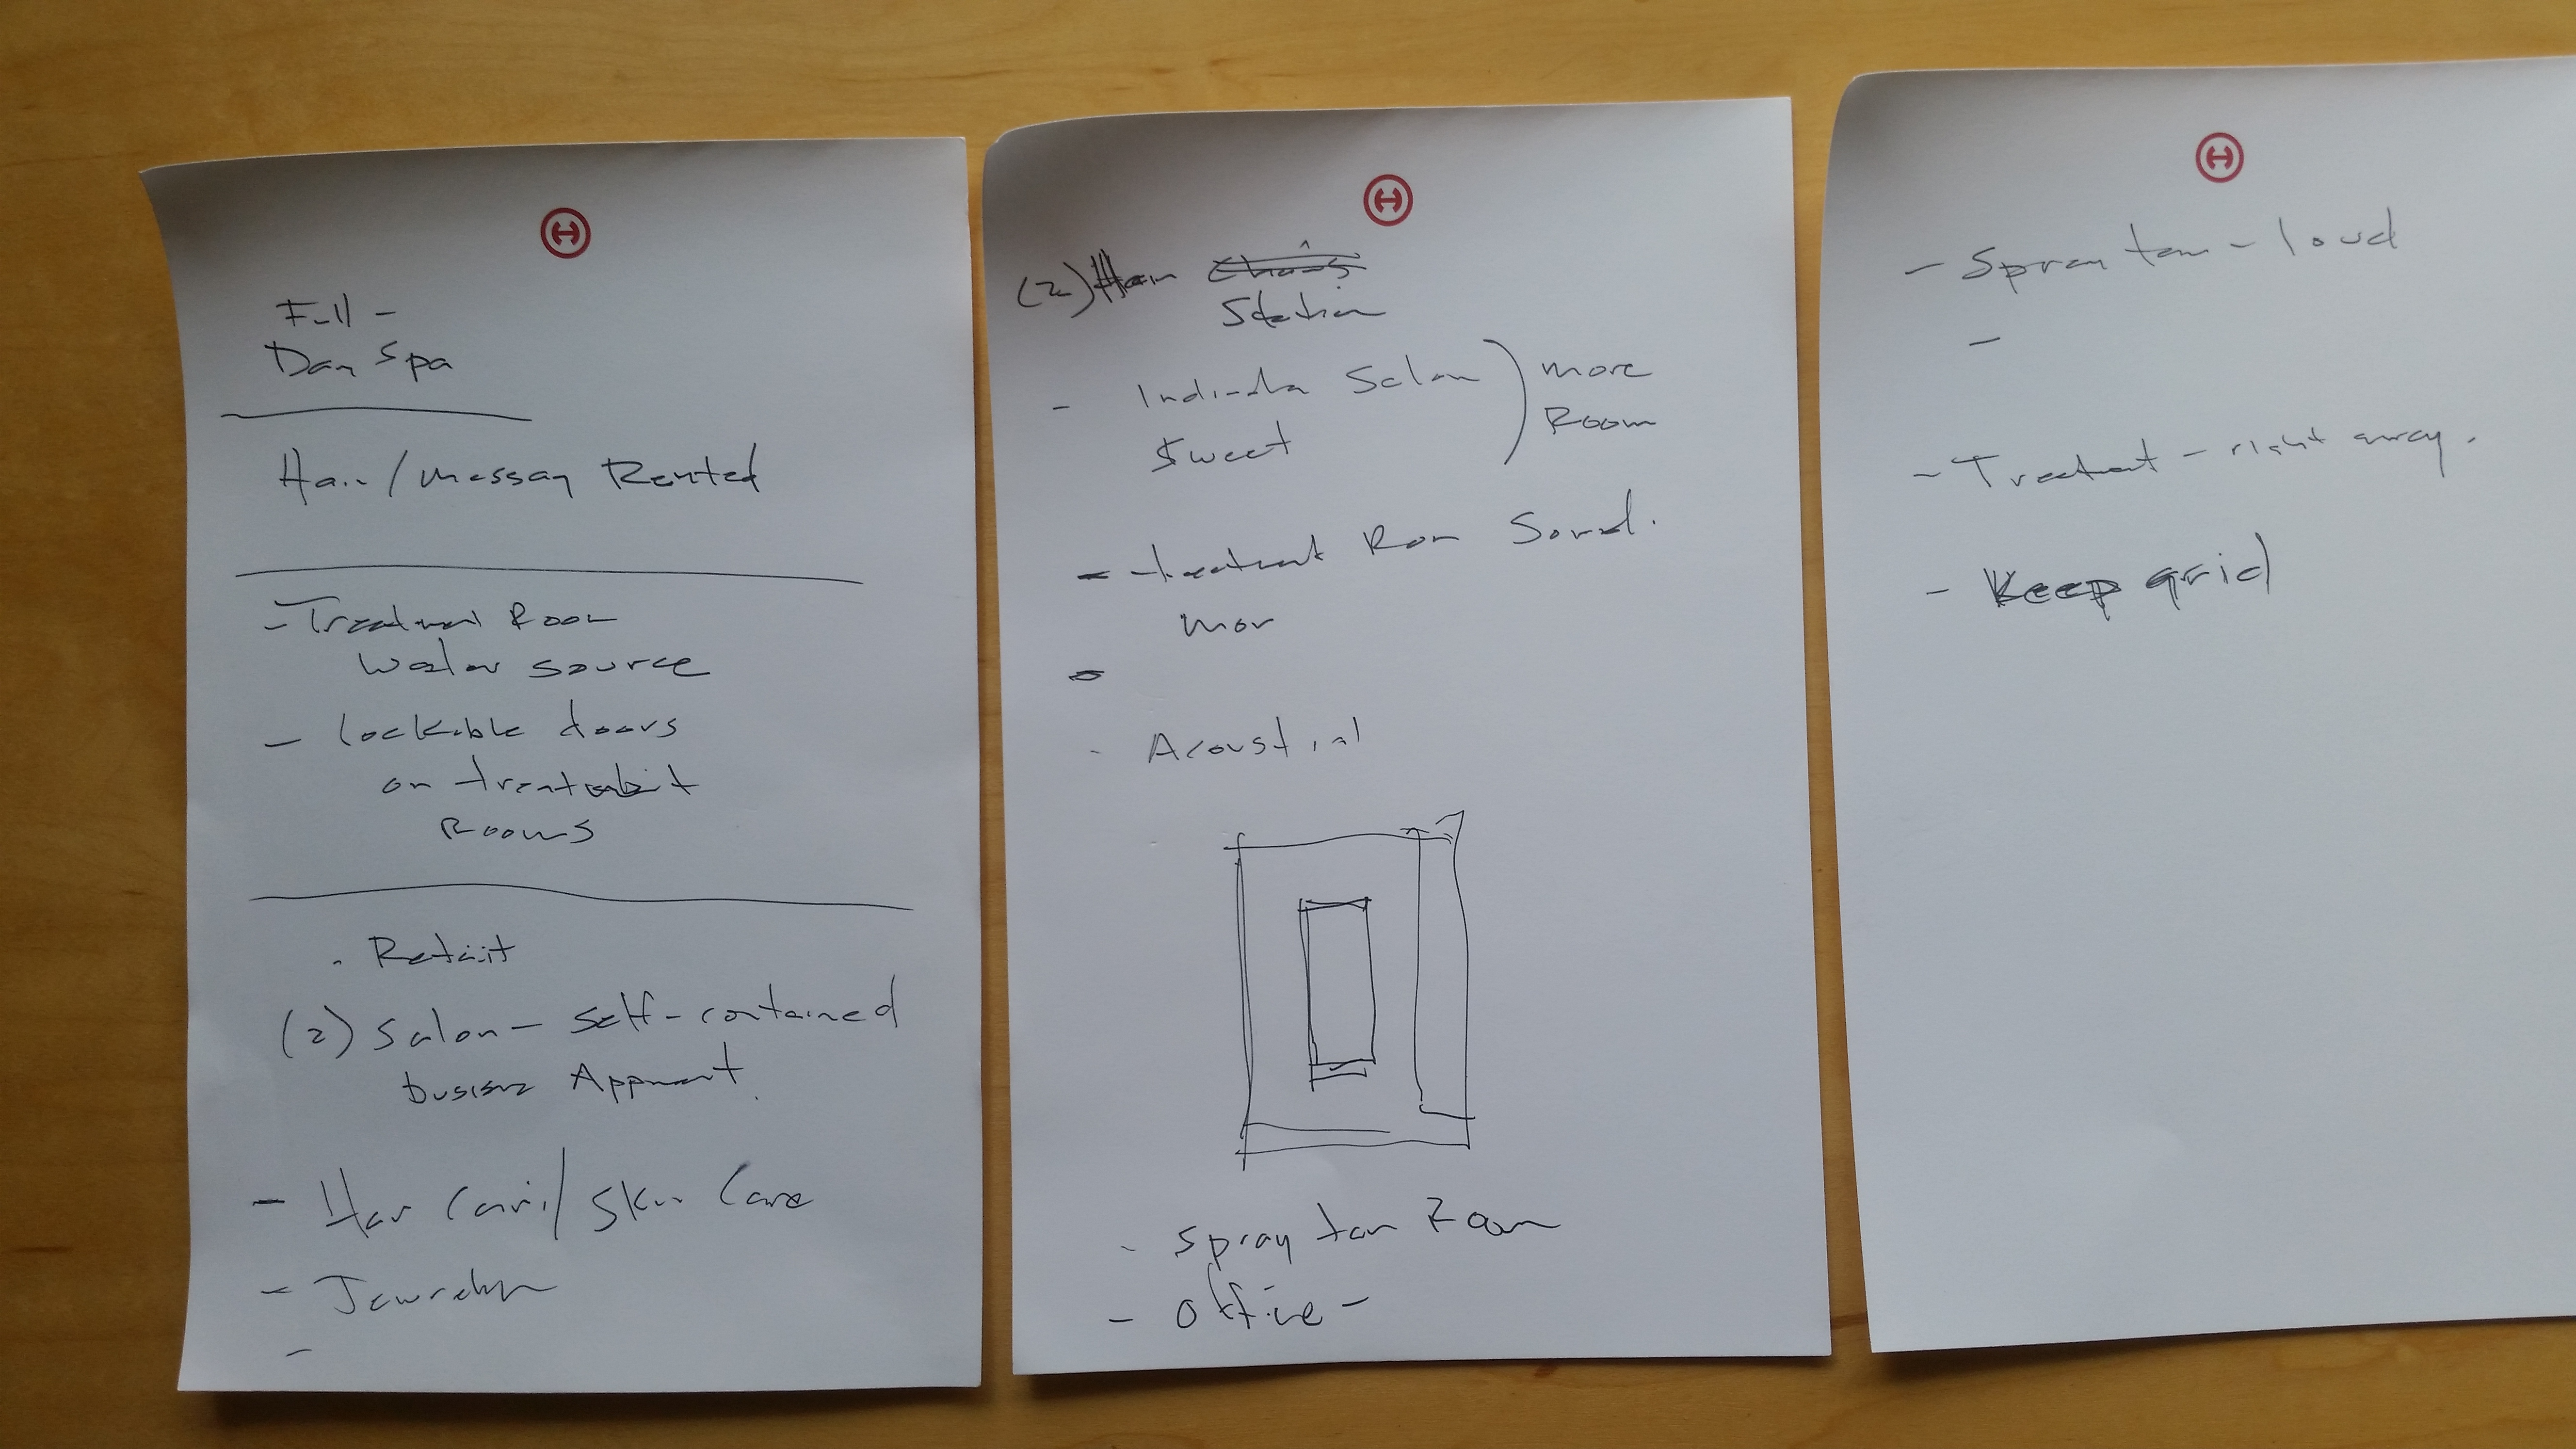 Full -
Day Spa
Hair / Massag Rented
- Treatment Room
Water source
- lockable doors
on treatment
Rooms
. Retail
(2) Salon - self-contained
Appment.
- Hair Care / Skin Care
- Jewrelry
-
(2) Hair Chairs
Station
- Salon ) more
Sweet Room
- treatment Room Sound.
mor
-
- Acoustical
- Spray tan Room
- Office -
- Spray tan - loud
-
- Treatment - right away.
- Keep grid